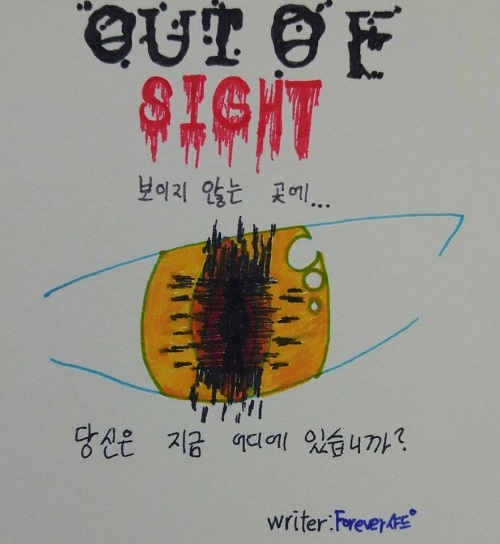 OUT OF
SIGHT
보이지 않는 곳에...
당신은 지금 어디에 있습니까?
writer:Forever샤드